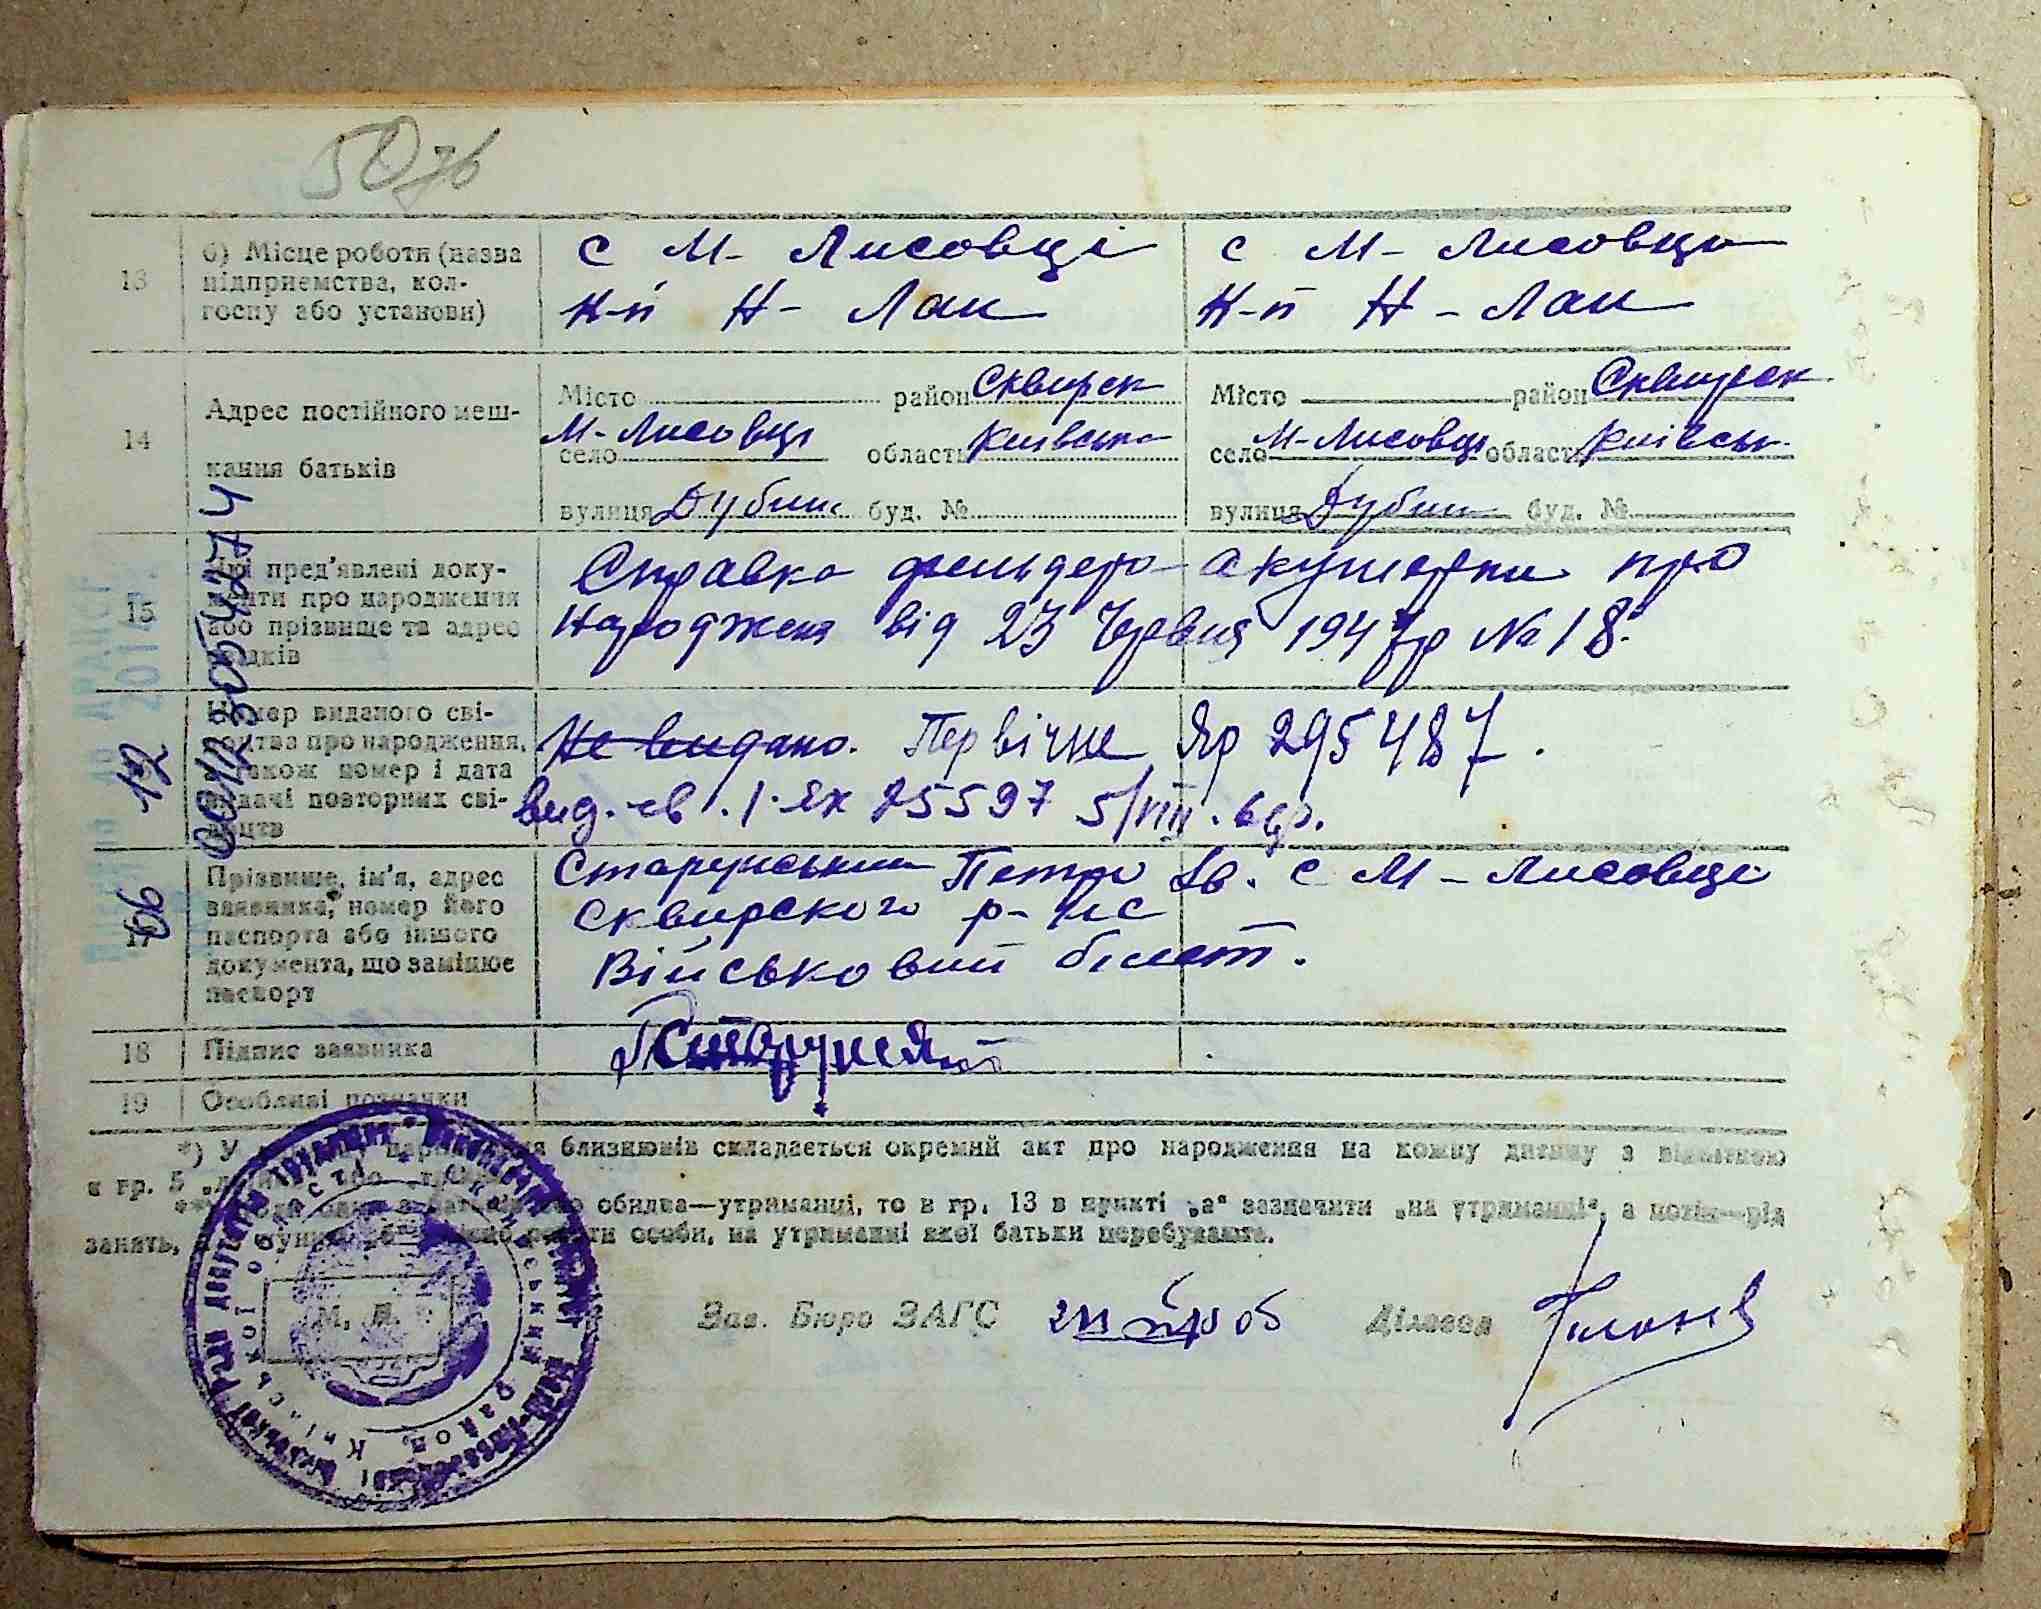 50 зв
13
б) Місце роботи (назва
підприємства, кол-
госпу або установи)
с М- Лисовці
К-п Н- Лан
с М- Лисовци
К-п Н - Лан
14
Адрес постійного меш-
кання батьків
Місто район Сквирск
село М-Лисовці область Київська
вулиця буд. №
Місто район Сквирск
село М-Лисовці область Київськ.
вулиця буд. №
15
Які пред'явлені доку-
менти про народження
або прізвище та адрес
Справка фельдера акушерки про
народженя від 23 Червня 1947р № 18.
Номер виданого сві-
доцтва про народження,
а також номер і дата
видачі повторних сві-
доцтв
Не видано. Первічне Яр 295487.
вид. св. 75597 5/VIII.
17
Прізвище, ім'я, адрес
заявника, номер його
паспорта або іншого
документа, що заміщює
паспорт
Петро Ів. с М - Лисовці
Сквирского р-на
Військовий білет.
18
Підпис заявника
19
Особливі позначки
*) У близнюків складається окремий акт про народження на кожну дитину з відміткою
в гр. 5
обидва—утриманці, то в гр. 13 в пункті „а" зазначити „на утриманні", а потім—рід
занять, роботи особи, на утриманні якої батьки перебувають.
М. П.
Зав. Бюро ЗАГС
Діловод
00123054274
12
56